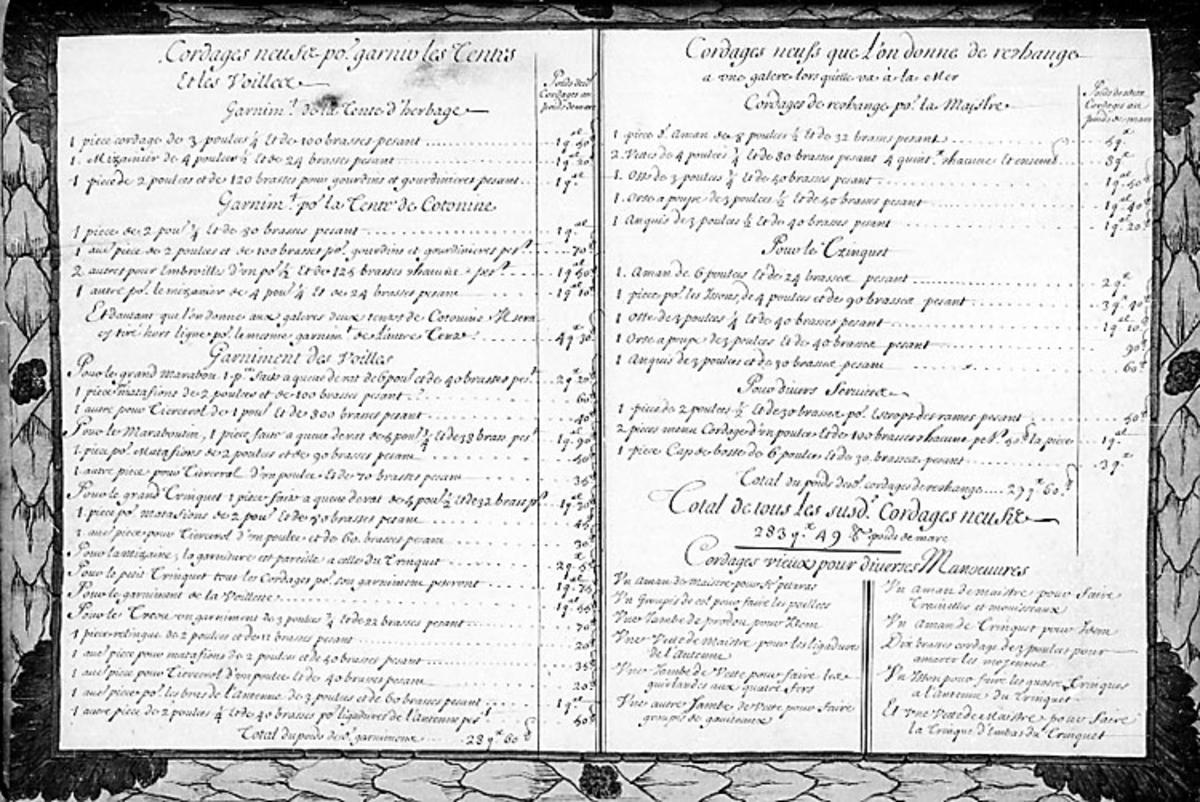 Cordages neufs po.r garnir les Tentes
Et les Voilles
Poids des
Cordages au
poids de marc
Garnim.t de la Tente d'herbage
1 piece cordage de 3 poulces ¼ Et de 100 brasses pesant 1 q.al 50
1. Mizanier de 4 poulces ½ Et de 24 brasses pesant 1 q.al 20
1 piece de 2 poulces et de 120 brasses pour gourdins et gourdinieres pesant 1 q.al
Garnim.t po.r la Tente de Cotonine
1 piece de 2 poul.s ¼ Et de 80 brasses pesant 1 q.al
1 au.e piece de 2 poulces et de 100 brasses po.r gourdins et gourdinieres pes.t 70
2 autres pour Embroilles d'un po.l ½ Et de 125 brasses chacune pes.t 1 q.al 50
1 autre po.r le mizanier de 4 poul ¼ Et de 24 brasses pesant 1 q.al 10
Et dautant que l'on donne aux galeres deux tentes de Cotonine Il sera
est tiré hors ligne po.r le mesme garnim.t de L'autre Tente 4 q 30
Garniment des Voilles
Pour le grand Marabou 1 p.ce faite a queue de rat de 6 poul.s et de 40 brasses pes.t 2 q.al 20
1 piece matafions de 2 poulces et de 100 brasses pesant 60
1 autre pour Tiercerol de 1 poul.s Et de 800 brasses pesant 40
Pour le Maraboutin, 1 piece faite a queue de rat de 5 poul.s ½ et de 38 brass pes.t 1 q.al 90
1 piece po.r Matafions de 2 poulces et de 90 brasses pesant 50
1 autre piece pour Tiercerol d'un poulce Et de 70 brasses pesant 35
Pour le grand Trinquet 1 piece faite a queue de rat de 5 poul.s ½ Et de 32 brass p.t 1 q.al 20
1 piece po.r matafions de 2 poul.s Et de 80 brasses pesant 45
1 au.e piece pour Tiercerol d'un poulce et de 60 brasses pesant 30
Pour la mizaine, la garniture est pareille a celle du Trinquet 2 q 5
Pour le petit Trinquet tous les Cordages po.r son garniment peseront 1 q.al 75
Pour le garniment de la Voillette 1 q.al 55
Pour le Treou en garniment de 3 poulces ¼ Et de 22 brasses 70
1 piece retinque de 2 poulces et de 12 brasses pesant 20
1 au.e piece pour matafions de 2 poulces et de 40 brasses pesant 35
1 au.e piece pour Tiercerol d'un poulce Et de 40 brasses pesant 20
1 au.e piece po.r les bras de l'antenne de 3 poulces et de 60 brasses pesant 1 q.al
1 autre piece de 2 poulces ¼ Et de 40 brasses po.r ligadures de l'antenne pes.t 50
Total du poids de s.d garnimens 28 q.al 60
Cordages neufs que L'on donne de rechange
a vne galere lors qu'elle va à la Mer
Poids desdits
Cordages au
poids de marc
Cordages de rechange po.r la Maystre
1 piece d'Aman de 8 poulces ½ Et de 32 brasses pesant 5 q.x
2. Vettes de 4 poulces ¾ Et de 80 brasses pesant 4 quint.x chacune et ensemb 8 q.x
1. Oste de 3 poulces ¼ Et de 50 brasses pesant 1 q.al 50
1. Orse a poupe de 3 poulces ½ Et de 50 brasses pesant 1 q.al 40
1 Anquis de 3 poulces ½ Et de 40 brasses pesant 1 q.al 20
Pour le Trinquet
1. Aman de 6 poulces Et de 24 brasses pesant 2 q.x
1 piece po.r les Issons, de 4 poulces et de 90 brasses pesant 3 q.x 40
1 Oste de 3 poulces ¼ Et de 40 brasses pesant 1 q.al 10
1 Orse a poupe de 3 poulces Et de 40 brasses pesant 90
1 Anquis de 3 poulces et de 30 brasses pesant 60
Pour divers Services
1 piece de 2 poulces ½ Et de 30 brasses po.r Estrops des rames pesant 50
2 pieces menu Cordage d'un poulce Et de 100 brasses chacune pe.t 50 la piece 1 q.al
1 piece Cap de poste de 6 poulces Et de 30 brasses pesant 3 q.x
Total du poids de s.d cordages de rechange 29 q.x 60
Total de tous les susd.s Cordages neufs
283 q.x 49 poids de marc
Cordages vieux pour diverses Manœuures
Vn Aman de Maistre pour
Vn Groupis de col pour faire les paillets
Vne Jambe de prodou pour Idem
Vne Vette de Maistre pour les ligadures
de l'Antenne
Vne Jambe de Vette pour faire les
guirlandes aux quatre fers
Vne autre Jambe de Vette pour faire
groupis de gauiteaux
Vn Aman de maistre pour faire
Trainelles et mouisseaux
Vn Aman de Trinquet pour Idem
Dix brasses cordage de 3 poulces pour
amarer les mezennes
Vn Ison pour faire les quatre Trinques
a l'antenne du Trinquet
Et vne vette de Maistre pour faire
la Trinque d'Embas du Trinquet